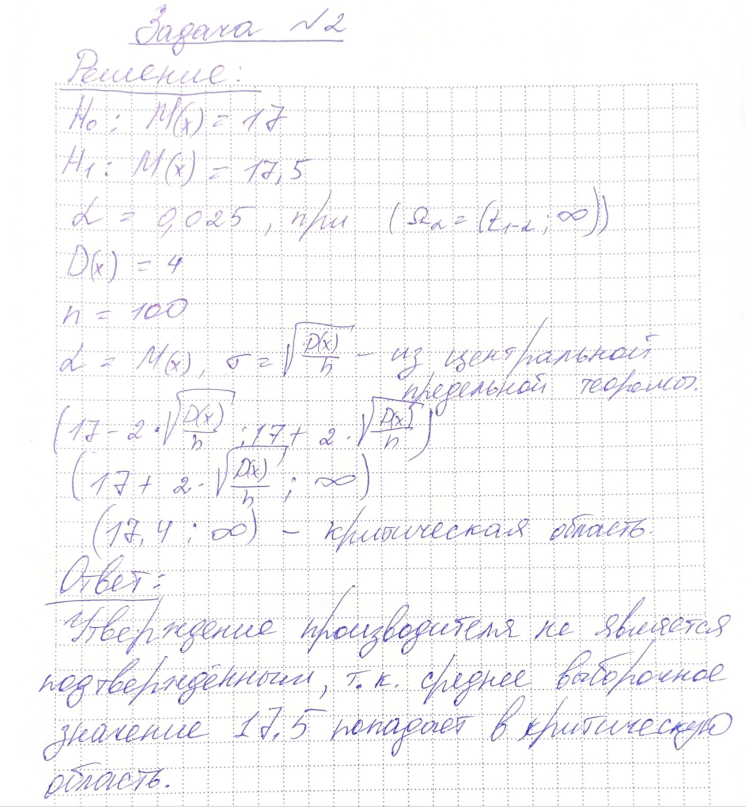 Задача №2
Решение:
H₀: M(x) = 17
H₁: M(x) = 17,5
α = 0,025, при (Ωα = (t₁₋α; ∞))
D(x) = 4
n = 100
α = M(x), σ = √(D(x)/n) – из центральной
предельной теоремы.
(17 - 2·√(D(x)/n); 17 + 2·√(D(x)/n))
(17 + 2·√(D(x)/n); ∞)
(17,4; ∞) – критическая область.
Ответ:
Утверждение производителя не является
подтверждённым, т.к. среднее выборочное
значение 17.5 попадает в критическую
область.